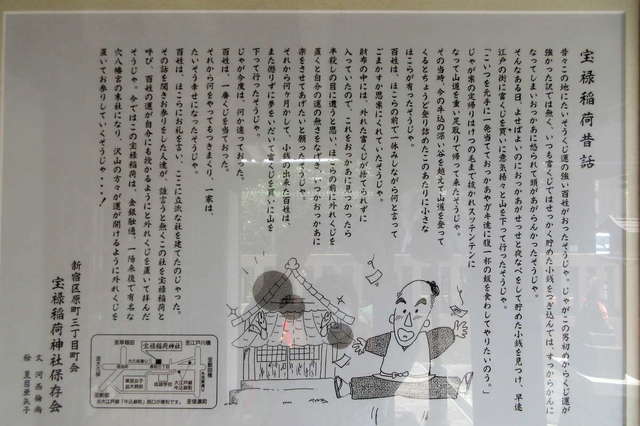 宝禄稲荷昔話
昔々この地にたいそうくじ運の強い百姓がおったそうじゃ。じゃがこの男初めからくじ運が
強かった訳では無く、いつも富くじではせっかく貯めた小銭をつぎ込んでは、すっからかんに
なってしまいおっかあに怒られて頭があがらんかったそうじゃ。
そんなある日、よせばよいのにおっかあがせっせと夜なべをして貯めた小銭を見つけ、早速
江戸の街に富くじを買いに意気揚々と山を下って行ったそうじゃ。
「こいつを元手に一発当てておっかあやガキ達に腹一杯の飯を食わしてやりたいのう。」
じゃが案の定帰りはけつの毛まで抜かれスッテンテンに
なって山道を重い足取りで帰って来たそうじゃ。
その当時、今の牛込の深い谷を越えて山道を登って
くるとちょうど登り詰めたこのあたりに小さな
ほこらが有ったそうじゃ。
百姓は、ほこらの前で一休みしながら何と言って
ごまかすか思案にくれていたそうじゃ。
財布の中には、外れた富くじが捨てられずに
入っていたので、これをおっかあに見つかったら
半殺しの目に遭うと思い、ほこらの前に外れくじを
置くと自分の運の無さをなげき、いつかおっかあに
楽をさせてあげたいと願ったそうじゃ。
それから何ヶ月かして、小銭の出来た百姓は、
また懲りずに夢をいだいて富くじを買いに山を
下って行ったそうじゃ。
じゃが今度は、何か違っておった。
百姓は、一番くじを当ておった。
それから何をやってもつきまくり、一家は、
たいそう幸せになったそうじゃ。
百姓は、ほこらにお礼を言い、ここに立派な社を建てたのじゃった。
その話を聞きお参りをした人達が、誰言うと無くこの社を宝禄稲荷と
呼び、百姓の運が自分にも授かるようにと外れくじを置いて拝んだ
そうじゃ。今ではこの宝禄稲荷は、金銀融通、一陽来復で有名な
穴八幡宮の末社になり、沢山の方々が運が開けるように外れくじを
置いてお参りしていくそうじゃ・・・！
新宿区原町三丁目町会
宝禄稲荷神社保存会
文 河西倫尚
宝禄稲荷神社